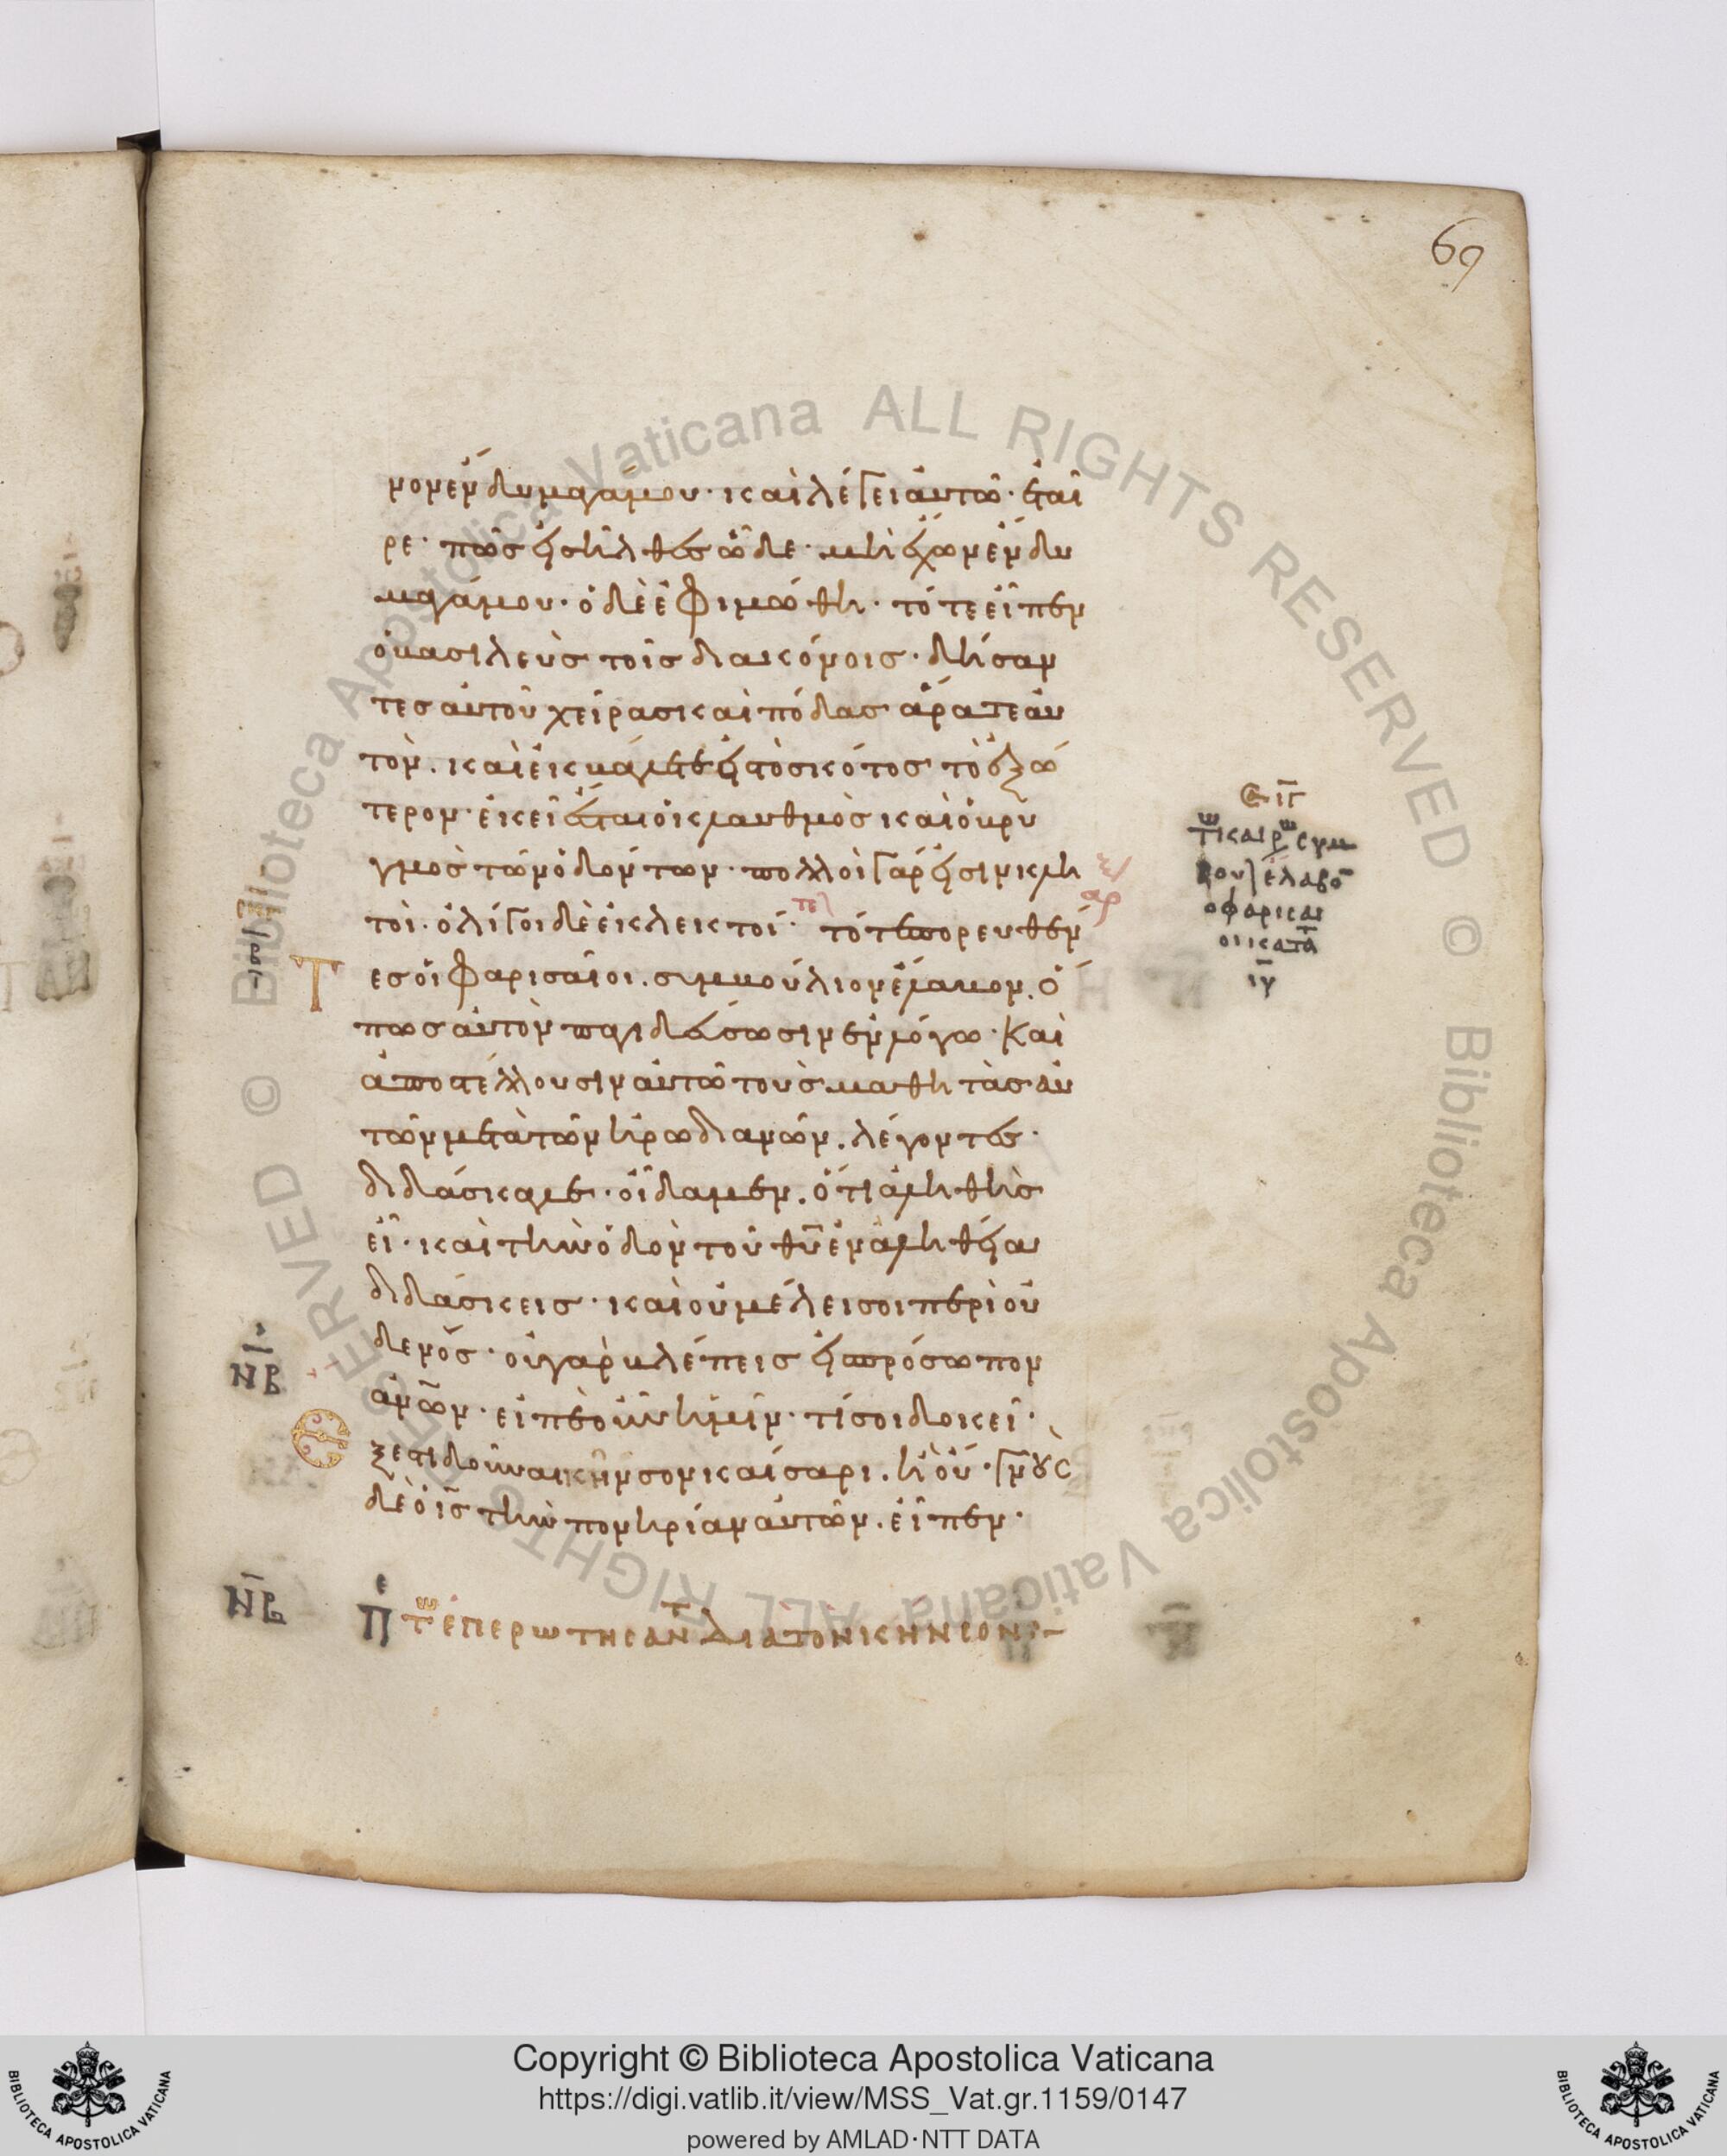 69
νον ἔνδυμα γάμου· καὶ λέγει αὐτῶ· ἑταῖ
ρε· πῶς εἰσῆλθες ὧδε· μὴ ἔχων ἔνδυ
μα γάμου· ὁ δὲ ἐφιμώθη· τότε εἶπεν
ὁ βασιλεὺς τοῖς διακόνοις· δήσαν
τες αὐτοῦ χεῖρας καὶ πόδας ἄρατε αὐ
τὸν. καὶ ἐκβάλετε εἰς τὸ σκότος τὸ ἐξώ
τερον· ἐκεῖ ἔσται ὁ κλαυθμὸς καὶ ὁ βρυ
γμὸς τῶν ὀδόντων· πολλοὶ γάρ εἰσιν κλη
τοὶ. ὀλίγοι δὲ ἐκλεκτοί· τότε πορευθέν
τες οἱ Φαρισαῖοι. συμβούλιον ἔλαβον. ὅ
πως αὐτὸν παγιδεύσωσιν ἐν λόγω· Καὶ
ἀποστέλλουσιν αὐτῶ τοὺς μαθητὰς αὐ
τῶν μετὰ τῶν ἡρωδιανῶν. λέγοντες·
διδάσκαλε· οἴδαμεν. ὅτι ἀληθὴς
εἶ· καὶ τὴν ὁδὸν τοῦ θῦ ἐν ἀληθεία
διδάσκεις· καὶ οὐ μέλει σοι περὶ οὐ
δενός· οὐ γὰρ βλέπεις εἰς πρόσωπον
ἀνῶν· εἰπὲ οὖν ἡμῖν· τί σοι δοκεῖ·
Ἔξεστι δοῦναι κῆνσον καίσαρι. ἢ οὔ· γνοὺς
δὲ ὁ ις τὴν πονηρίαν αὐτῶν. εἶπεν·
τω καιρω συμ
βουλ ἐλαβο
οἱ φαρισαι
οι κατα
ιυ
ΝΒ
ΝΒ
Π τω ἐπερωτησαντ διὰ τὸν κηνσον
Copyright © Biblioteca Apostolica Vaticana
https://digi.vatlib.it/view/MSS_Vat.gr.1159/0147
powered by AMLAD·NTT DATA
BIBLIOTECA APOSTOLICA VATICANA
BIBLIOTECA APOSTOLICA VATICANA
Biblioteca Apostolica Vaticana ALL RIGHTS RESERVED © Biblioteca Apostolica Vaticana ALL RIGHTS RESERVED ©